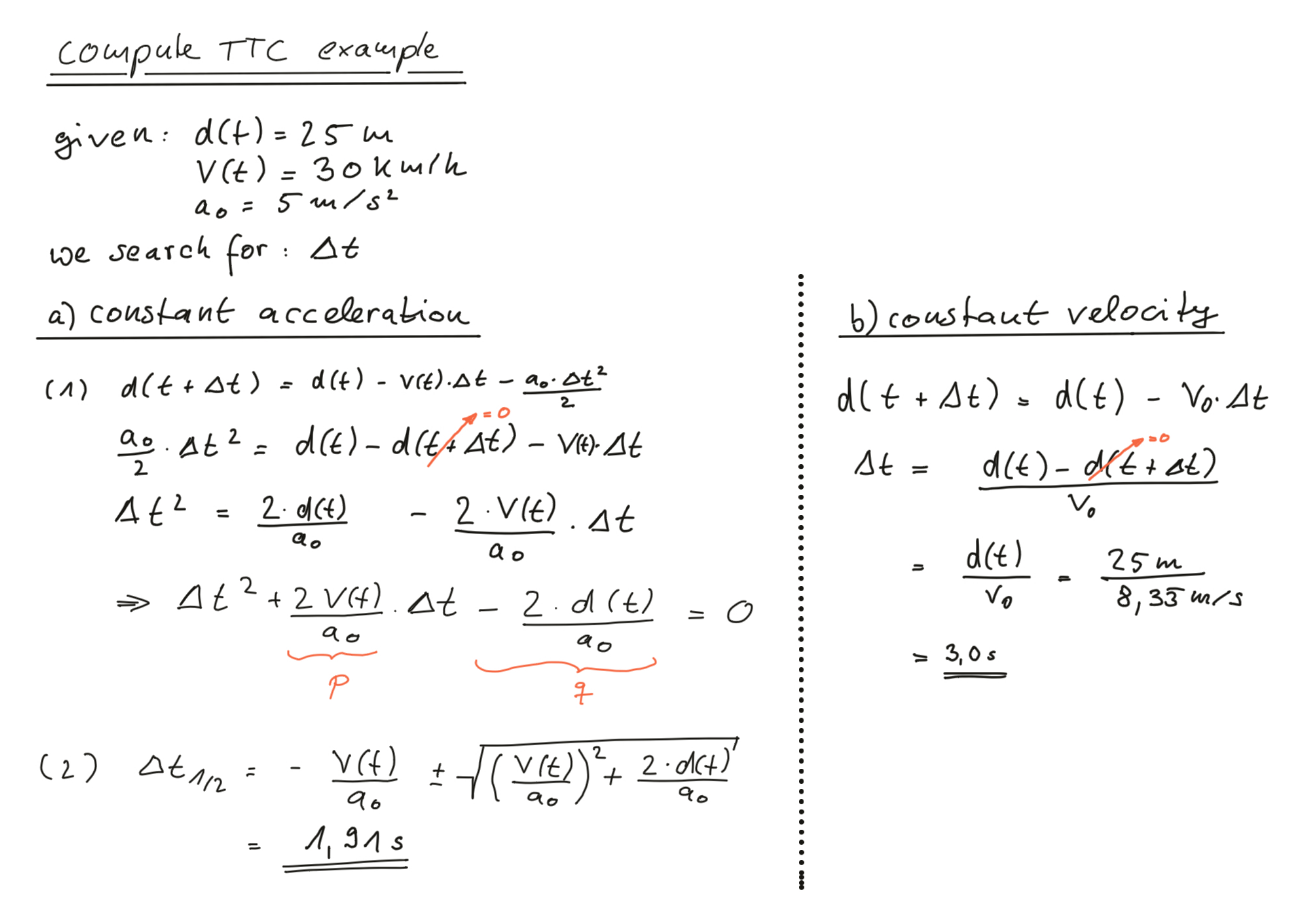 compute TTC example
given: d(t) = 25 m
V(t) = 30 km/h
a₀ = 5 m/s²
we search for: Δt
a) constant acceleration
(1) d(t + Δt) = d(t) - v(t)·Δt - a₀·Δt²/2
a₀/2 · Δt² = d(t) - d(t + Δt) - V(t)·Δt
= 0
Δt² = 2·d(t)/a₀ - 2·V(t)/a₀ · Δt
⇒ Δt² + 2 V(t)/a₀ · Δt - 2·d(t)/a₀ = 0
p q
(2) Δt₁/₂ = - V(t)/a₀ ± √((V(t)/a₀)² + 2·d(t)/a₀)
= 1,91 s
b) constant velocity
d(t + Δt) = d(t) - V₀·Δt
Δt = (d(t) - d(t + Δt))/V₀
=0
= d(t)/V₀ = 25 m/8,33 m/s
= 3,0 s